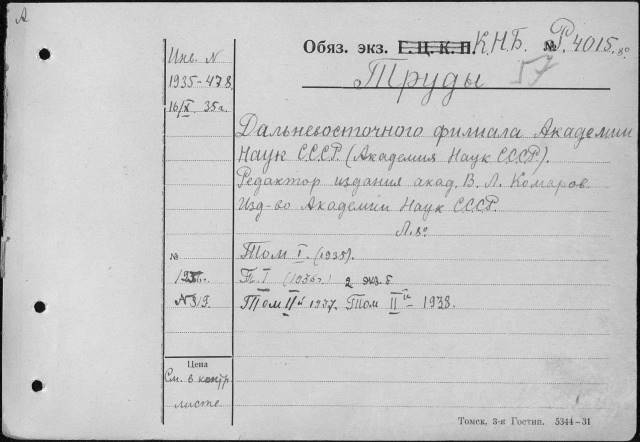 А
Обяз. экз. Г.Ц.К.П. К.Н.Б. № Р.4015.
Труды 57
Инв. N
1935-478
16/X 35г.
Дальневосточного филиала Академии
Наук СССР. (Академия Наук СССР).
Редактор издания акад. В. Л. Комаров.
Изд-во Академии Наук СССР.
Л. 8º
№ Том I. (1935).
Т. I (1935г.) 2 экз. б
Том II 1937. Том II - 1938.
Цена
См. в контр.
листе
Томск, 3-я Гостип. 5344-31